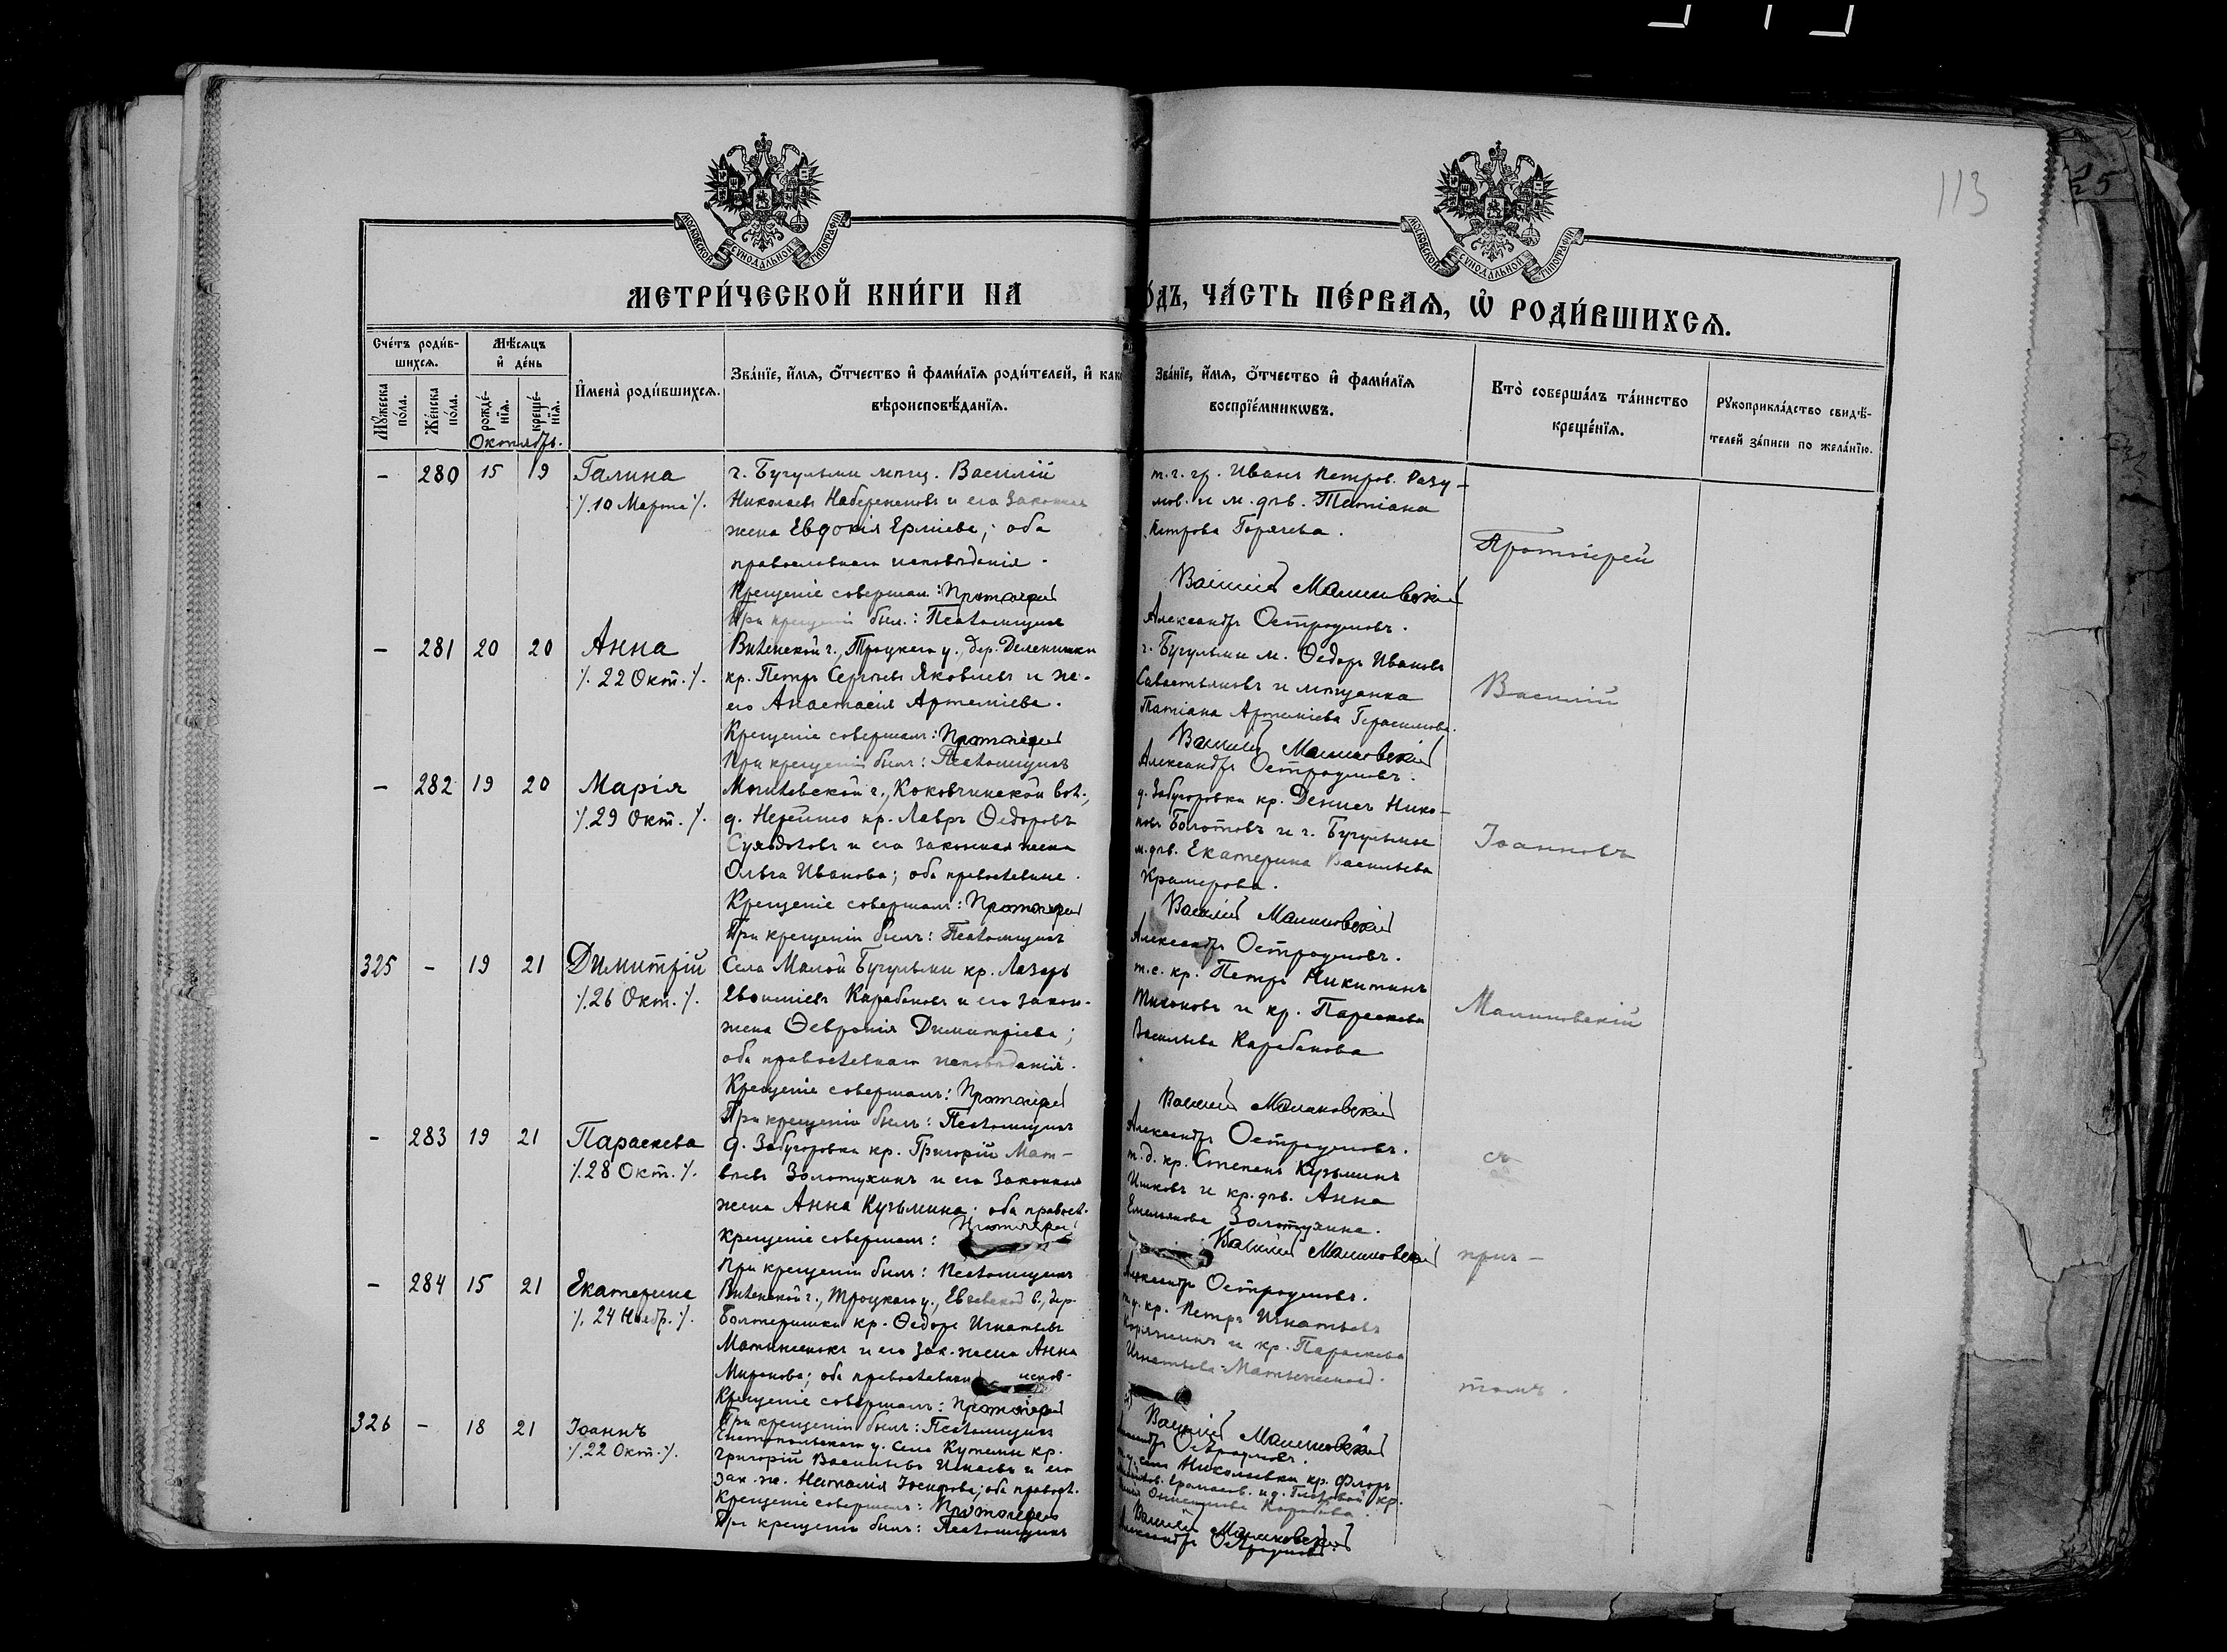 113
25
МОСКОВСКОЙ СѴНОДАЛЬНОЙ ТИПОГРАФІИ
МОСКОВСКОЙ СѴНОДАЛЬНОЙ ТИПОГРАФІИ
МЕТРИ́ЧЕСКОЙ КНИ́ГИ НА
О́ДЪ, ЧА́СТЬ ПЕ́РВАѦ, Ѡ РОДИ́ВШИХСѦ.
Сче́тъ роди́в-
шихсѧ.
Мꙋ́жеска
по́ла.
Же́нска
по́ла.
Мѣ́сѧцъ
и҆ де́нь
рожде́-
нїѧ.
креще́-
нїѧ.
Октябрь.
И҆мена̀ роди́вшихсѧ.
Зва́нїе, и҆́мѧ, ѻ҆́тчество и҆ фами́лїѧ роди́телей, и҆ как
вѣроисповѣ́данїѧ.
Зва́нїе, и҆́мѧ, ѻ҆́тчество и҆ фами́лїѧ
воспрїе́мникѡвъ.
Кто̀ соверша́лъ та́инство
креще́нїѧ.
Рꙋкоприкла́дство свидѣ́-
телей за́писи по жела́нїю.
- 280 15 19 Галина
/. 10 Марта /.
г. Бугульмы мѣщ. Василій
Николаевъ и его законная
жена Евдокія; оба
православнаго исповѣданія.
Крещеніе совершал: Протоіерей
При крещеніи был.: Псаломщикъ
т. г. гр. Иванъ Петров. Разу-
мов. и м. дѣв. Татіана
Петрова Горячева.
Василій Малиновскій
Александръ Остроумовъ.
Протоіерей
- 281 20 20 Анна
/. 22 Окт. /.
Виленской г., Троцкаго у., дер.
кр. Петръ Сергѣевъ Яковлевъ и же-
его Анастасія Артеміева.
Крещеніе совершалъ: Протоіерей
При крещеніи былъ: Псаломщикъ
г. Бугульмы м. Ѳедоръ Ивановъ
Савостьяновъ и мѣщанка
Татіана Артеміева Герасимова.
Василій Малиновскій
Александръ Остроумовъ.
Василій
- 282 19 20 Марія
/. 29 Окт. /.
Могилевской г., вол.,
д. кр. Лавръ Ѳедоровъ
и его законная жена
Ольга Иванова; оба православные.
Крещеніе совершалъ: Протоіерей
При крещеніи былъ: Псаломщикъ
д. Забугоровки кр. Денисъ Нико-
Болотовъ и г. Бугульмы
м. дѣв. Екатерина Васильева
Крамерова.
Василій Малиновскій
Александръ Остроумовъ.
Іоанновъ
325 - 19 21 Димитрій
/. 26 Окт. /.
Села Малой Бугульмы кр. Лазарь
Карабановъ и его закон.
жена Ѳевронія Димитріева;
оба православнаго исповѣданія.
Крещеніе совершалъ: Протоіерей
При крещеніи былъ: Псаломщикъ
т. с. кр. Петръ Никитинъ
и кр. Параскева
Васильева Карабанова
Василій Малиновскій
Александръ Остроумовъ.
Малиновскій
- 283 19 21 Параскева
/. 28 Окт. /.
д. Забугоровки кр. Григорій Мат-
вѣевъ Золотухинъ и его законная
жена Анна Кузьмина; оба правосл.
Крещеніе совершалъ: Протоіерей
При крещеніи былъ: Псаломщикъ
т. д. кр. Степанъ Кузьминъ
и кр. дѣв. Анна
Емельянова Золотухина.
Василій Малиновскій
Александръ Остроумовъ.
съ
прич-
- 284 15 21 Екатерина
/. 24 Ноябр. /.
Виленской г., Троцкаго у., дер.
кр. Ѳедоръ Игнатьевъ
и его зак. жена Анна
Миронова; оба православнаго испов.
Крещеніе совершалъ: Протоіерей
При крещеніи былъ: Псаломщикъ
кр. Петръ Игнатьевъ
и кр. Параскева
Игнатьева
Василій Малиновскій
Александръ Остроумовъ.
томъ.
326 - 18 21 Іоаннъ
/. 22 Окт. /.
Чистопольскаго у. села кр.
Григорій Васильевъ и его
зак. ж. Наталія Іосифова; оба правосл.
Крещеніе совершалъ: Протоіерей
При крещеніи былъ: Псаломщикъ
Николаевки кр. Флоръ
Василій Малиновскій
Александръ Остроумовъ